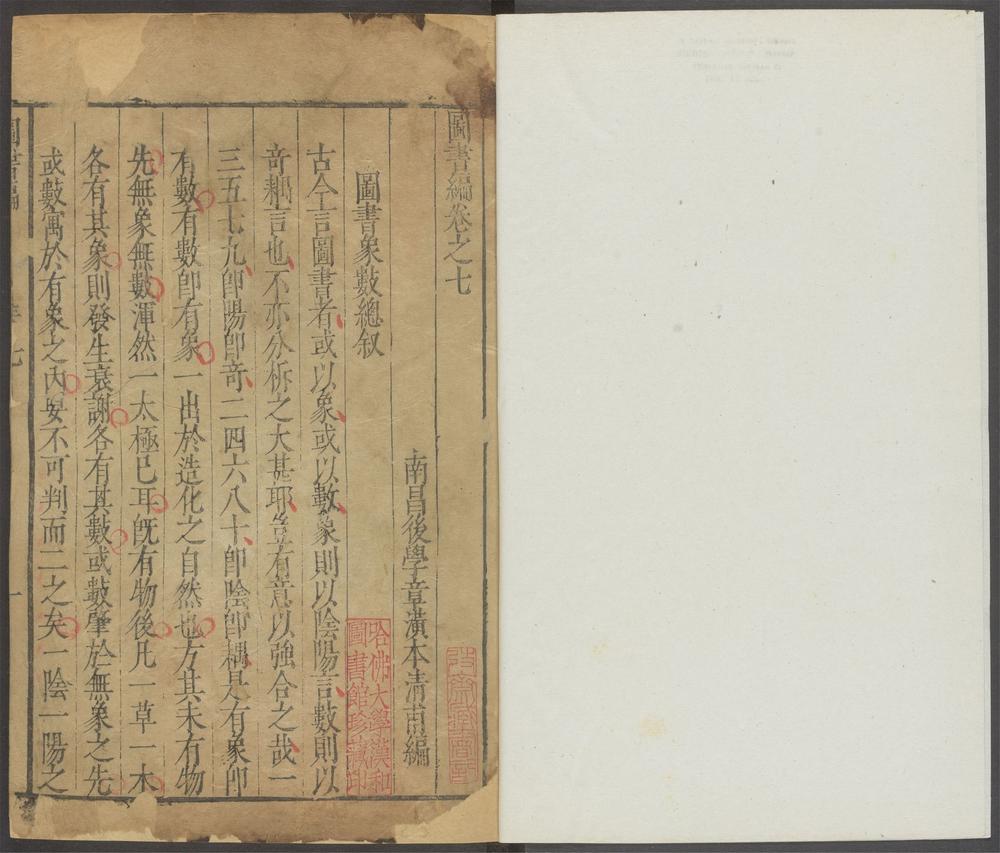 圖書編卷之七
南昌後學章潢本清甫編
圖書象數總叙
古今言圖書者或以象或以數象則以陰陽言數則以
奇耦言也不亦分析之大甚耶豈有意以強合之哉一
三五七九卽陽卽奇二四六八十卽陰卽耦是有象卽
有數有數卽有象一出於造化之自然也方其未有物
先無象無數渾然一太極已耳旣有物後凡一草一木
各有其象則發生衰謝各有其數或數肇於無象之先
或數寓於有象之內妄不可判而二之矣一陰一陽之
哈佛大學漢和
圖書館珍藏印
圖書編
七
一